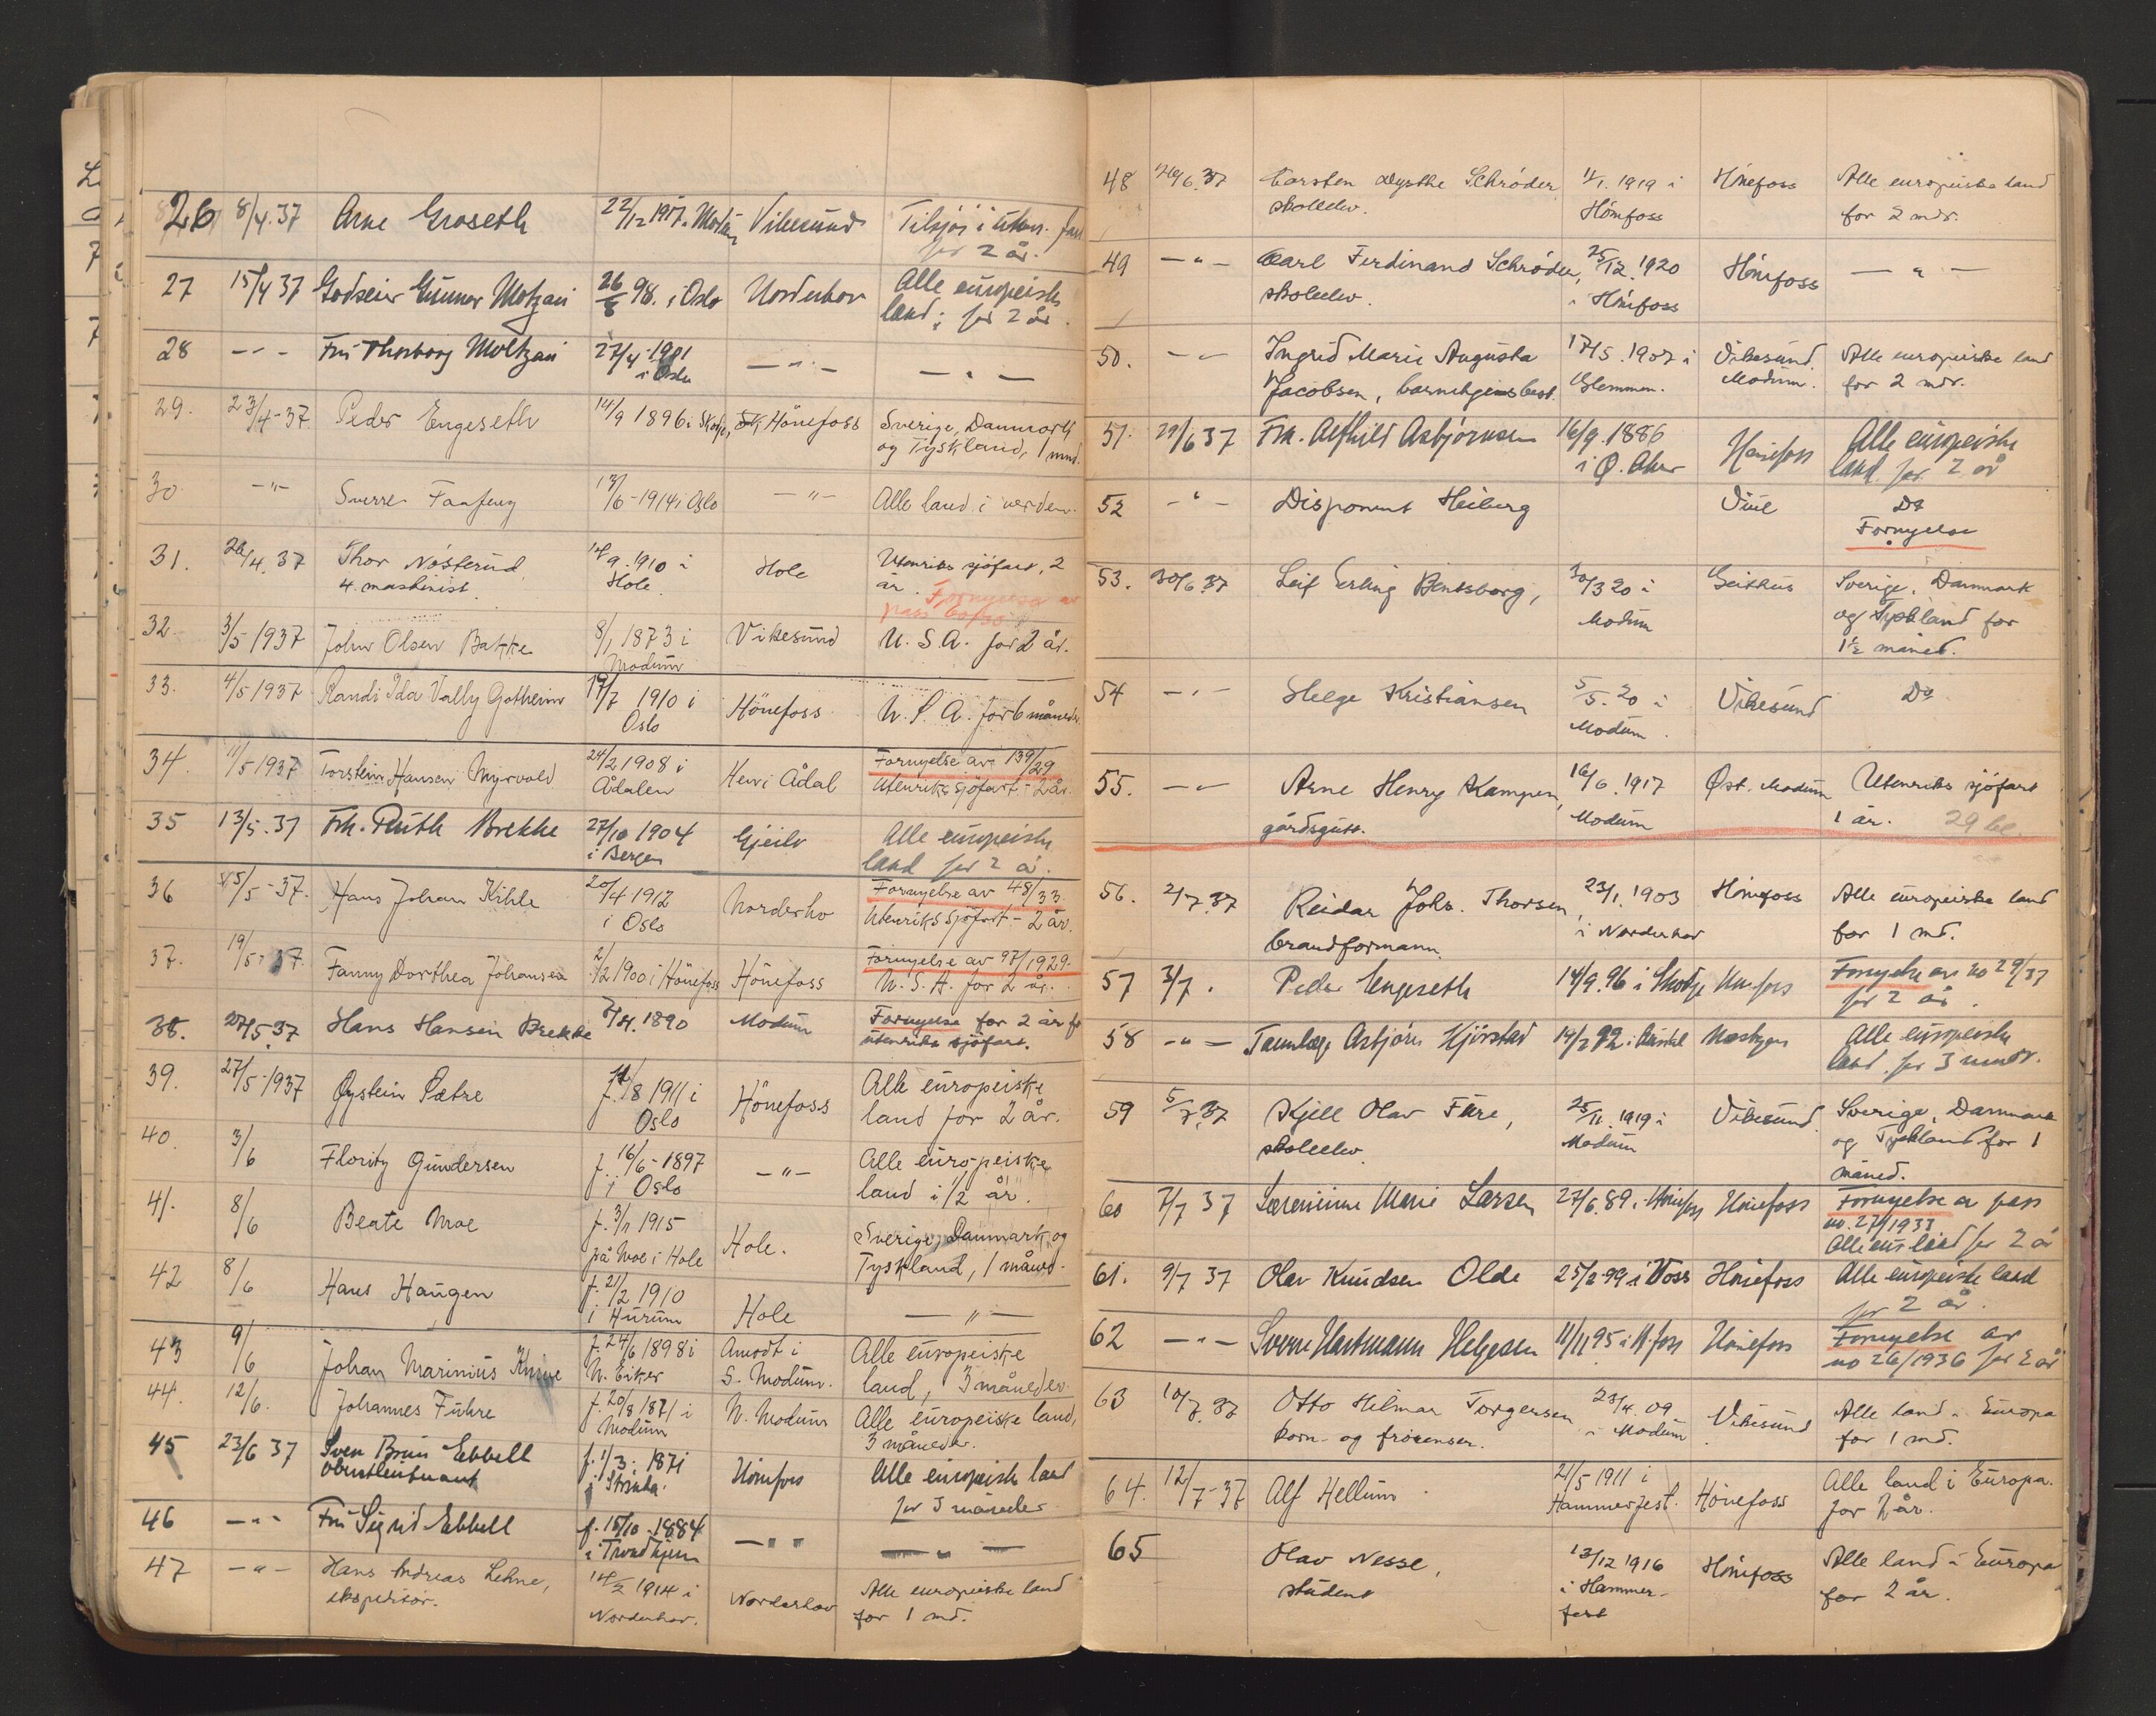 26 8/4.37 Arne Groseth 22/12 1917. Modum Vikesund Tilsjøs i uten. fart
for 2 år.
27 15/4 37 Godseier Gunnar Moltzau 26/8 98. i Oslo Norderhov Alle europeiske
land; for 2 år.
28 -"- Fru Thorborg Moltzau 27/4-1901 -"- -"-
i Oslo
29. 23/4-37. Peder Engeseth 14/9 1896 i Skodje, Hönefoss Sverige, Danmark
og Tyskland, 1 mnd.
30 -"- Sverre 13/6-1914 i Oslo -"- Alle land i verden.
31. 26/4.37 Thor Nösterud, 14/9.1910 i Hole Utenriks sjöfart, 2
4. maskinist. Hole. år. Fornyelse av
pass
32. 3/5 1937 John Olsen Bakke 8/1 1873 i Vikesund U.S.A. for 2 år.
Modum
33. 4/5 1937 Randi Ida Vally Gotheim 17/7 1910 i Hönefoss U.S.A. for 6 måneder.
Oslo
34. 11/5 1937 Torstein Hansen Myrvold 24/2 1908 i Hen i Ådal Fornyelse av 139/29
Ådalen Utenriks sjöfart - 2 år.
35 13/5.37 Frk. Ruth Brekke 27/10 1904 Gjeilo Alle europeiske
i Bergen land for 2 år.
36 15/5-37. Hans Johan Kihle 20/4 1912 Norderho Fornyelse av 48/33.
i Oslo Utenriks sjöfart - 2 år.
37. 19/5-37. Fanny Dorthea Johansen 2/2 1900 i Hönefoss Hönefoss Fornyelse av 97/1929.
U.S.A. for 2 år.
38. 27/5.37 Hans Hansen Brekke 7/4.1890 Modum Fornyelse for 2 år for
utenriks sjöfart.
39. 27/5-1937 Øystein Sætre f. 11/8 1911 i Hönefoss Alle europeiske
Oslo land for 2 år.
40. 3/6 Flority Gundersen f. 16/6-1897 -"- Alle europeiske
i Oslo land i 1/2 år.
41. 8/6 Beate Moe f. 3/1 1915 Hole. Sverige, Danmark og
på Moe i Hole Tyskland, 1 måned.
42 8/6 Hans Haugen f. 21/2 1910 Hole -"-
i Hurum
43 9/6 Johan Marinius Knive f. 24/6 1898 i Amodt i Alle europeiske
N. Eiker S. Modum. land, 3 måneder.
44. 12/6. Johannes Fuhre f. 20/8 1871 i N. Modum Alle europeiske land,
Modum 3 måneder.
45 23/6 37 Sven Brun Ebbell f. 1/3. 1871 Hönefoss Alle europeiske land
oberstleutnant i Strinda. for 3 måneder
46 -"- Fru Sigrid Ebbell f. 15/10-1884 -"- -"-
i Trondhjem
47 -"- Hans Andreas Lehne, 14/2 1914 i Norderhov Alle europeiske land
ekspeditør. Norderhov. for 1 md.
48 29/6.37 Carsten Dysthe Schröder 4/1.1919 i Hönefoss Alle europeiske land
skoleelev. Hönefoss for 2 mdr.
49 -"- Carl Ferdinand Schröder, 25/12.1920 Hönefoss -"-
skoleelev. i Hönefoss
50. -"- Ingrid Marie Augusta 17/5.1907 i Vikesund. Alle europeiske land
Jacobsen, barnehjemsbest. Glemmen. Modum. for 2 mdr.
51. 29/6 37 Frk. Alfhild Asbjörnsen 16/9.1886 Hönefoss Alle europeiske
i Ø. Aker land. for 2 år
52 -"- Disponent Heiberg Viul Do
Fornyelse
53. 30/6.37 Leif Erling Bentsborg, 30/3 20 i Geithus Sverige, Danmark
Modum og Tyskland for
1½ måned.
54 -"- Helge Kristiansen 5/5.20 i Vikesund Do
Modum.
55. -"- Arne Henry Kampen, 16/6.1917 Øst. Modum Utenriks sjöfart
gårdsgutt. Modum 1 år. 29 bl.
56. 2/7.37 Reidar Johs. Thorsen, 23/1.1903 Hönefoss Alle europeiske land
brandformann. i Norderhov for 1 md.
57 3/7. Peder Engeseth 14/9.96 i Skodje Hnefoss Fornyelse av no 29/37
for 2 år.
58 -"- Tannlæge Asbjörn Kjörstad 19/2 92 Alle europeiske
land. for 3 mndr.
59 5/7.37 Kjell Olav Fure, 25/11.1919 i Vikesund. Sverige, Danmark
skoleelev. Modum og Tyskland for 1
måned.
60 7/7 37 Sørenine Marie Larsen 27/6.89 i Hönefoss Hönefoss Fornyelse av pass
no. 27/1933
Alle eur. land for 2 år
61. 9/7 37 Olav Knudsen Olde 25/2-99 i Voss Hönefoss Alle europeiske land
for 2 år.
62 -"- Sverre Hartmann Helgesen 11/11 95 i H.foss Hönefoss Fornyelse av
no 26/1936 for 2 år
63 10/7.37 Otto Hilmar Torgersen 23/4.09 Vikesund Alle land i Europa
korn- og frörenser. i Modum for 1 md.
64. 12/7-37 Alf Hellum 21/5 1911 i Hönefoss Alle land i Europa.
Hammerfest. for 2 år.
65 Olav Nesse, 13/12 1916 Hönefoss Alle land i Europa
student i Hammer- for 2 år.
fest